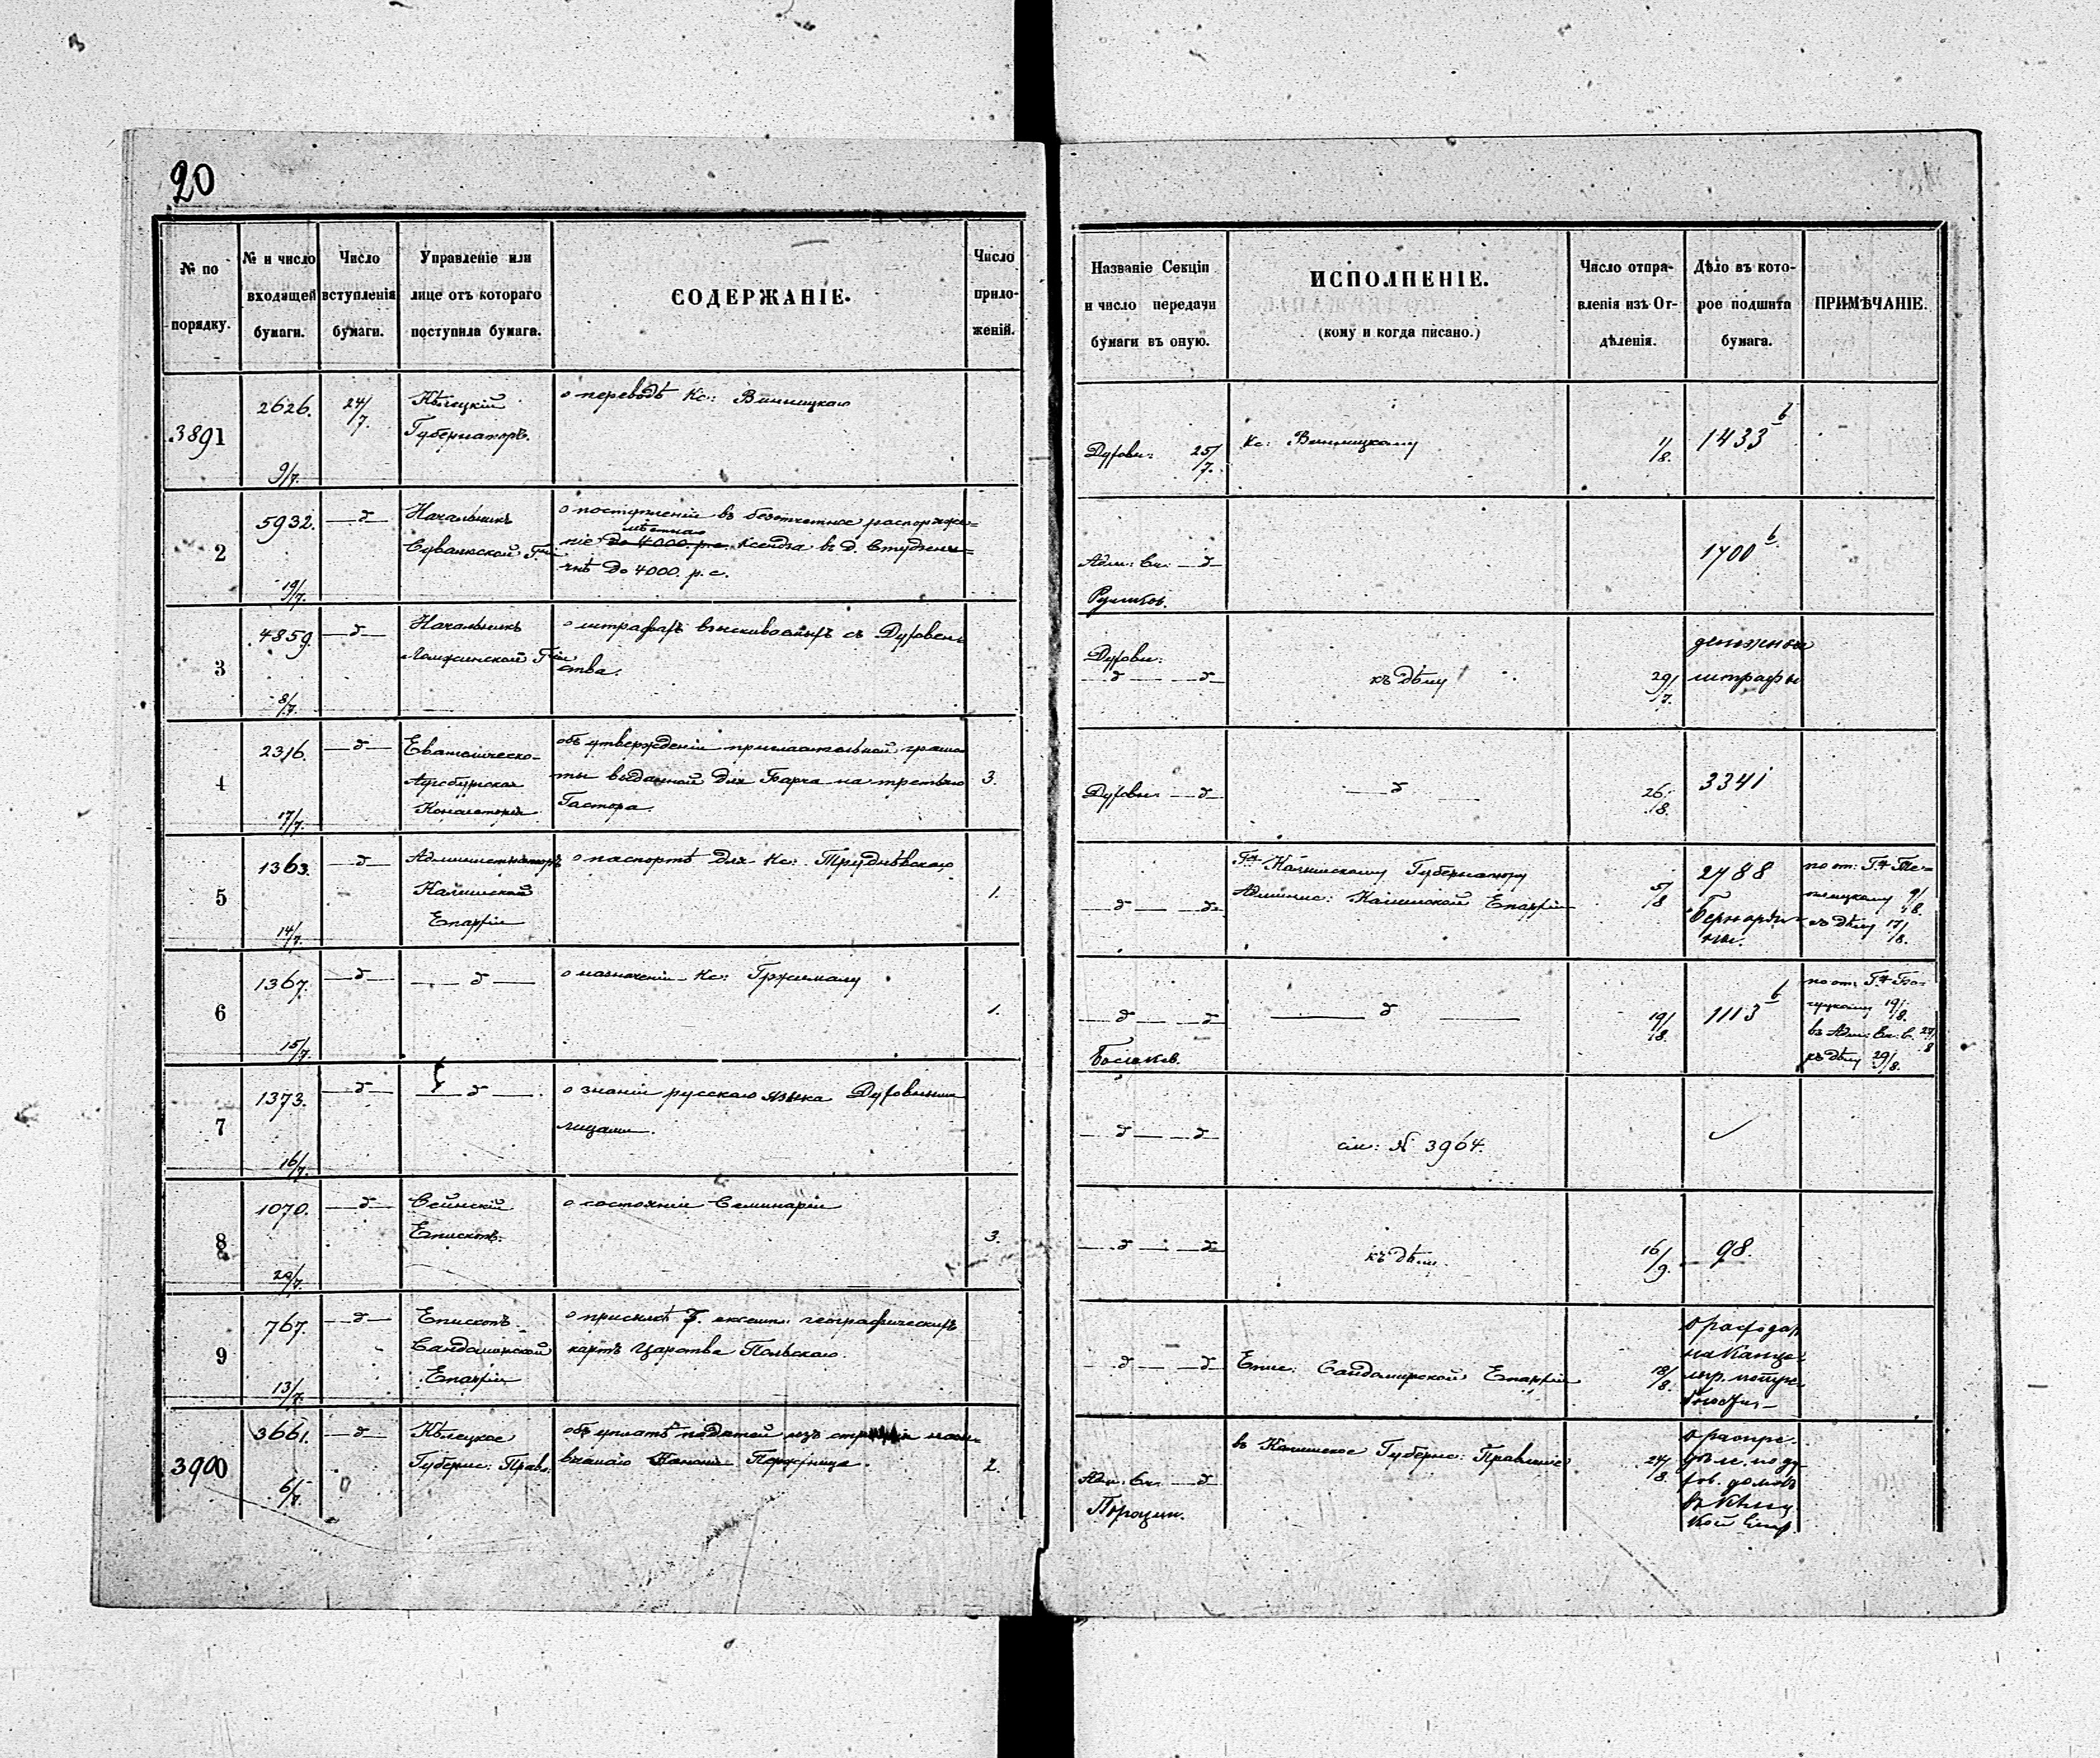 20
№ по порядку.
№ и число входящей бумаги.
Число вступленія бумаги.
Управленіе или лице отъ котораго поступила бумага.
СОДЕРЖАНІЕ.
Число приложеній.
Названіе Секціи и число передачи бумаги въ оную.
ИСПОЛНЕНІЕ.
(кому и когда писано.)
Число отправленія изъ Отдѣленія.
Дѣло въ которое подшита бумага.
ПРИМѢЧАНІЕ.
3891
2626.
9/7.
24/7.
Кѣлецкій
Губернаторъ.
о переводѣ Кс: Винницкаго
Духовн: 25/7.
Кс: Винницкому
1/8.
1433 b
2
5932.
19/7.
— d —
Начальникъ
Сувалкской Г-іи
о поступленіи въ безотчетное распоряже=
мѣстнаго
ніе до 4000 р. с. Ксендза въ д. Студзени=
чнѣ до 4000. р. с.
Адм: Ск: — d
1700 b.
3
4859.
8/7.
— d —
Начальникъ
Ломжинской Г-іи
о штрафахъ взыскиваемыхъ съ Духовен
ства.
Духовн:
— d — — d —
къ дѣлу
29/7.
денежные
штрафы
4
2316.
17/7.
— d —
Евангелическо-
Аугсбургская
Консисторія
объ утвержденіи пригласительной грамо
ты выданной для Барча на третьяго
Пастора.
3.
Духовн: — d —
— d —
26/8.
3341
5
1363.
14/7.
— d —
Администраторъ
Калишской
Епархіи
о паспортѣ для Кс:
1.
— d — — d —
Г-ну Калишскому Губернатору
Админис: Калишской Епархіи
5/8
2788
Бернарди
ны.
по от: Г-ну
9/8.
къ дѣлу 17/8.
6
1367.
15/7.
— d —
— d —
о назначеніи Кс: Гржималу
1.
— d — — d —
— d —
19/8.
1113 b
по от: Г-ну
19/8.
въ Адм: Ск: 27/8
къ дѣлу 29/8.
7
1373.
16/7.
— d —
— d —
о знаніи русскаго языка Духовными
лицами.
— d — — d —
см: № 3964.
8
1070.
20/7.
— d —
Сейнскій
Епископъ.
о состояніи Семинаріи
3.
— d — — d —
къ дѣлу.
16/9.
98.
9
767.
13/7.
— d —
Епископъ
Сандомирской
Епархіи
о присылкѣ 7. экземпл: географическихъ
картъ Царства Польскаго.
— d — — d —
Епис: Сандомирской Епархіи
18/8.
о расходах
на Канце-
3900
3661.
6/7.
— d —
Кѣлецкое
Губернс: Правл.
объ уплатѣ податей изъ
2.
Адм: Ск: — d
въ Калишское Губернс: Правленіе
27/8.
о распре-
дѣле. по ду-
хов. домов
въ Кѣлец
кой Епар.